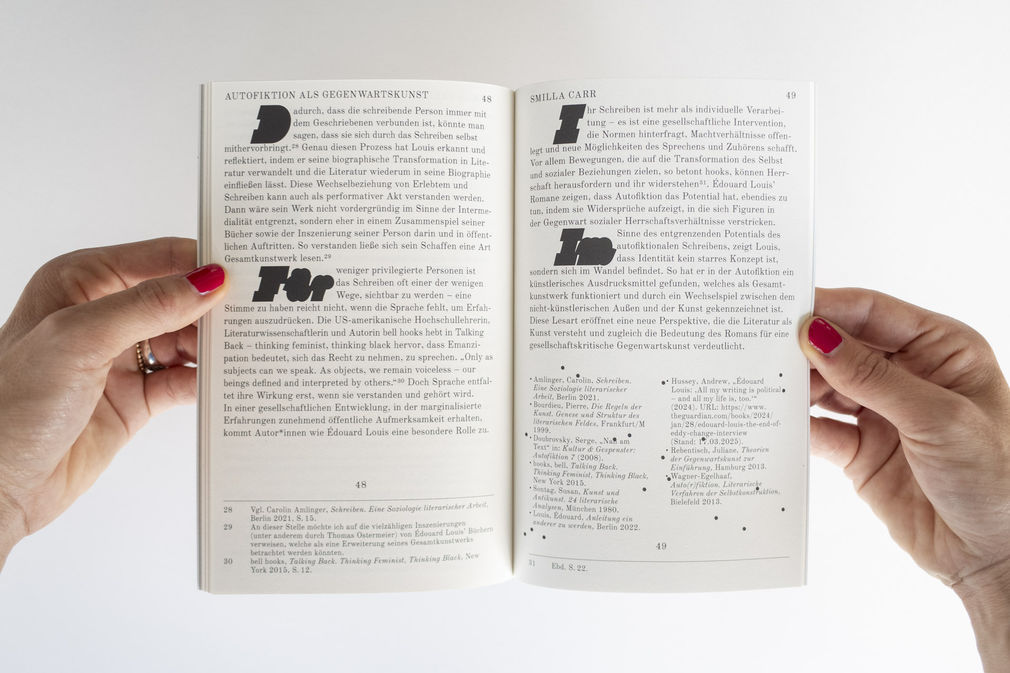 AUTOFIKTION ALS GEGENWARTSKUNST 48
Dadurch, dass die schreibende Person immer mit
dem Geschriebenen verbunden ist, könnte man
sagen, dass sie sich durch das Schreiben selbst
mithervorbringt.²⁸ Genau diesen Prozess hat Louis erkannt und
reflektiert, indem er seine biographische Transformation in Lite-
ratur verwandelt und die Literatur wiederum in seine Biographie
einfließen lässt. Diese Wechselbeziehung von Erlebtem und
Schreiben kann auch als performativer Akt verstanden werden.
Dann wäre sein Werk nicht vordergründig im Sinne der Interme-
dialität entgrenzt, sondern eher in einem Zusammenspiel seiner
Bücher sowie der Inszenierung seiner Person darin und in öffent-
lichen Auftritten. So verstanden ließe sich sein Schaffen eine Art
Gesamtkunstwerk lesen.²⁹
Für weniger privilegierte Personen ist
das Schreiben oft einer der wenigen
Wege, sichtbar zu werden – eine
Stimme zu haben reicht nicht, wenn die Sprache fehlt, um Erfah-
rungen auszudrücken. Die US-amerikanische Hochschullehrerin,
Literaturwissenschaftlerin und Autorin bell hooks hebt in Talking
Back – thinking feminist, thinking black hervor, dass Emanzi-
pation bedeutet, sich das Recht zu nehmen, zu sprechen. „Only as
subjects can we speak. As objects, we remain voiceless – our
beings defined and interpreted by others.“³⁰ Doch Sprache entfal-
tet ihre Wirkung erst, wenn sie verstanden und gehört wird.
In einer gesellschaftlichen Entwicklung, in der marginalisierte
Erfahrungen zunehmend öffentliche Aufmerksamkeit erhalten,
kommt Autor*innen wie Édouard Louis eine besondere Rolle zu.
48
28 Vgl. Carolin Amlinger, Schreiben. Eine Soziologie literarischer Arbeit,
Berlin 2021, S. 15.
29 An dieser Stelle möchte ich auf die vielzähligen Inszenierungen
(unter anderem durch Thomas Ostermeier) von Édouard Louis’ Büchern
verweisen, welche als eine Erweiterung seines Gesamtkunstwerks
betrachtet werden könnten.
30 bell hooks, Talking Back. Thinking Feminist, Thinking Black, New
York 2015, S. 12.
SMILLA CARR 49
Ihr Schreiben ist mehr als individuelle Verarbei-
tung – es ist eine gesellschaftliche Intervention,
die Normen hinterfragt, Machtverhältnisse offen-
legt und neue Möglichkeiten des Sprechens und Zuhörens schafft.
Vor allem Bewegungen, die auf die Transformation des Selbst
und sozialer Beziehungen zielen, so betont hooks, können Herr-
schaft herausfordern und ihr widerstehen³¹. Édouard Louis’
Romane zeigen, dass Autofiktion das Potential hat, ebendies zu
tun, indem sie Widersprüche aufzeigt, in die sich Figuren in
der Gegenwart sozialer Herrschaftsverhältnisse verstricken.
Im Sinne des entgrenzenden Potentials des
autofiktionalen Schreibens, zeigt Louis,
dass Identität kein starres Konzept ist,
sondern sich im Wandel befindet. So hat er in der Autofiktion ein
künstlerisches Ausdrucksmittel gefunden, welches als Gesamt-
kunstwerk funktioniert und durch ein Wechselspiel zwischen dem
nicht-künstlerischen Außen und der Kunst gekennzeichnet ist.
Diese Lesart eröffnet eine neue Perspektive, die die Literatur als
Kunst versteht und zugleich die Bedeutung des Romans für eine
gesellschaftskritische Gegenwartskunst verdeutlicht.
• Amlinger, Carolin, Schreiben.
Eine Soziologie literarischer
Arbeit, Berlin 2021.
• Bourdieu, Pierre, Die Regeln der
Kunst. Genese und Struktur des
literarischen Feldes, Frankfurt/M
1999.
• Doubrovsky, Serge, „Nah am
Text“ in: Kultur & Gespenster:
Autofiktion 7 (2008).
• hooks, bell, Talking Back.
Thinking Feminist, Thinking Black,
New York 2015.
• Sontag, Susan, Kunst und
Antikunst. 24 literarische
Analysen, München 1980.
• Louis, Édouard, Anleitung ein
anderer zu werden, Berlin 2022.
• Hussey, Andrew, „Édouard
Louis: ‚All my writing is political
– and all my life is, too.‘“
(2024). URL: https://www.
theguardian.com/books/2024/
jan/28/edouard-louis-the-end-of-
eddy-change-interview
(Stand: 17.03.2025).
• Rebentisch, Juliane, Theorien
der Gegenwartskunst zur
Einführung, Hamburg 2013.
• Wagner-Egelhaaf,
Auto(r)fiktion. Literarische
Verfahren der Selbstkonstruktion,
Bielefeld 2013.
49
31 Ebd. S. 22.